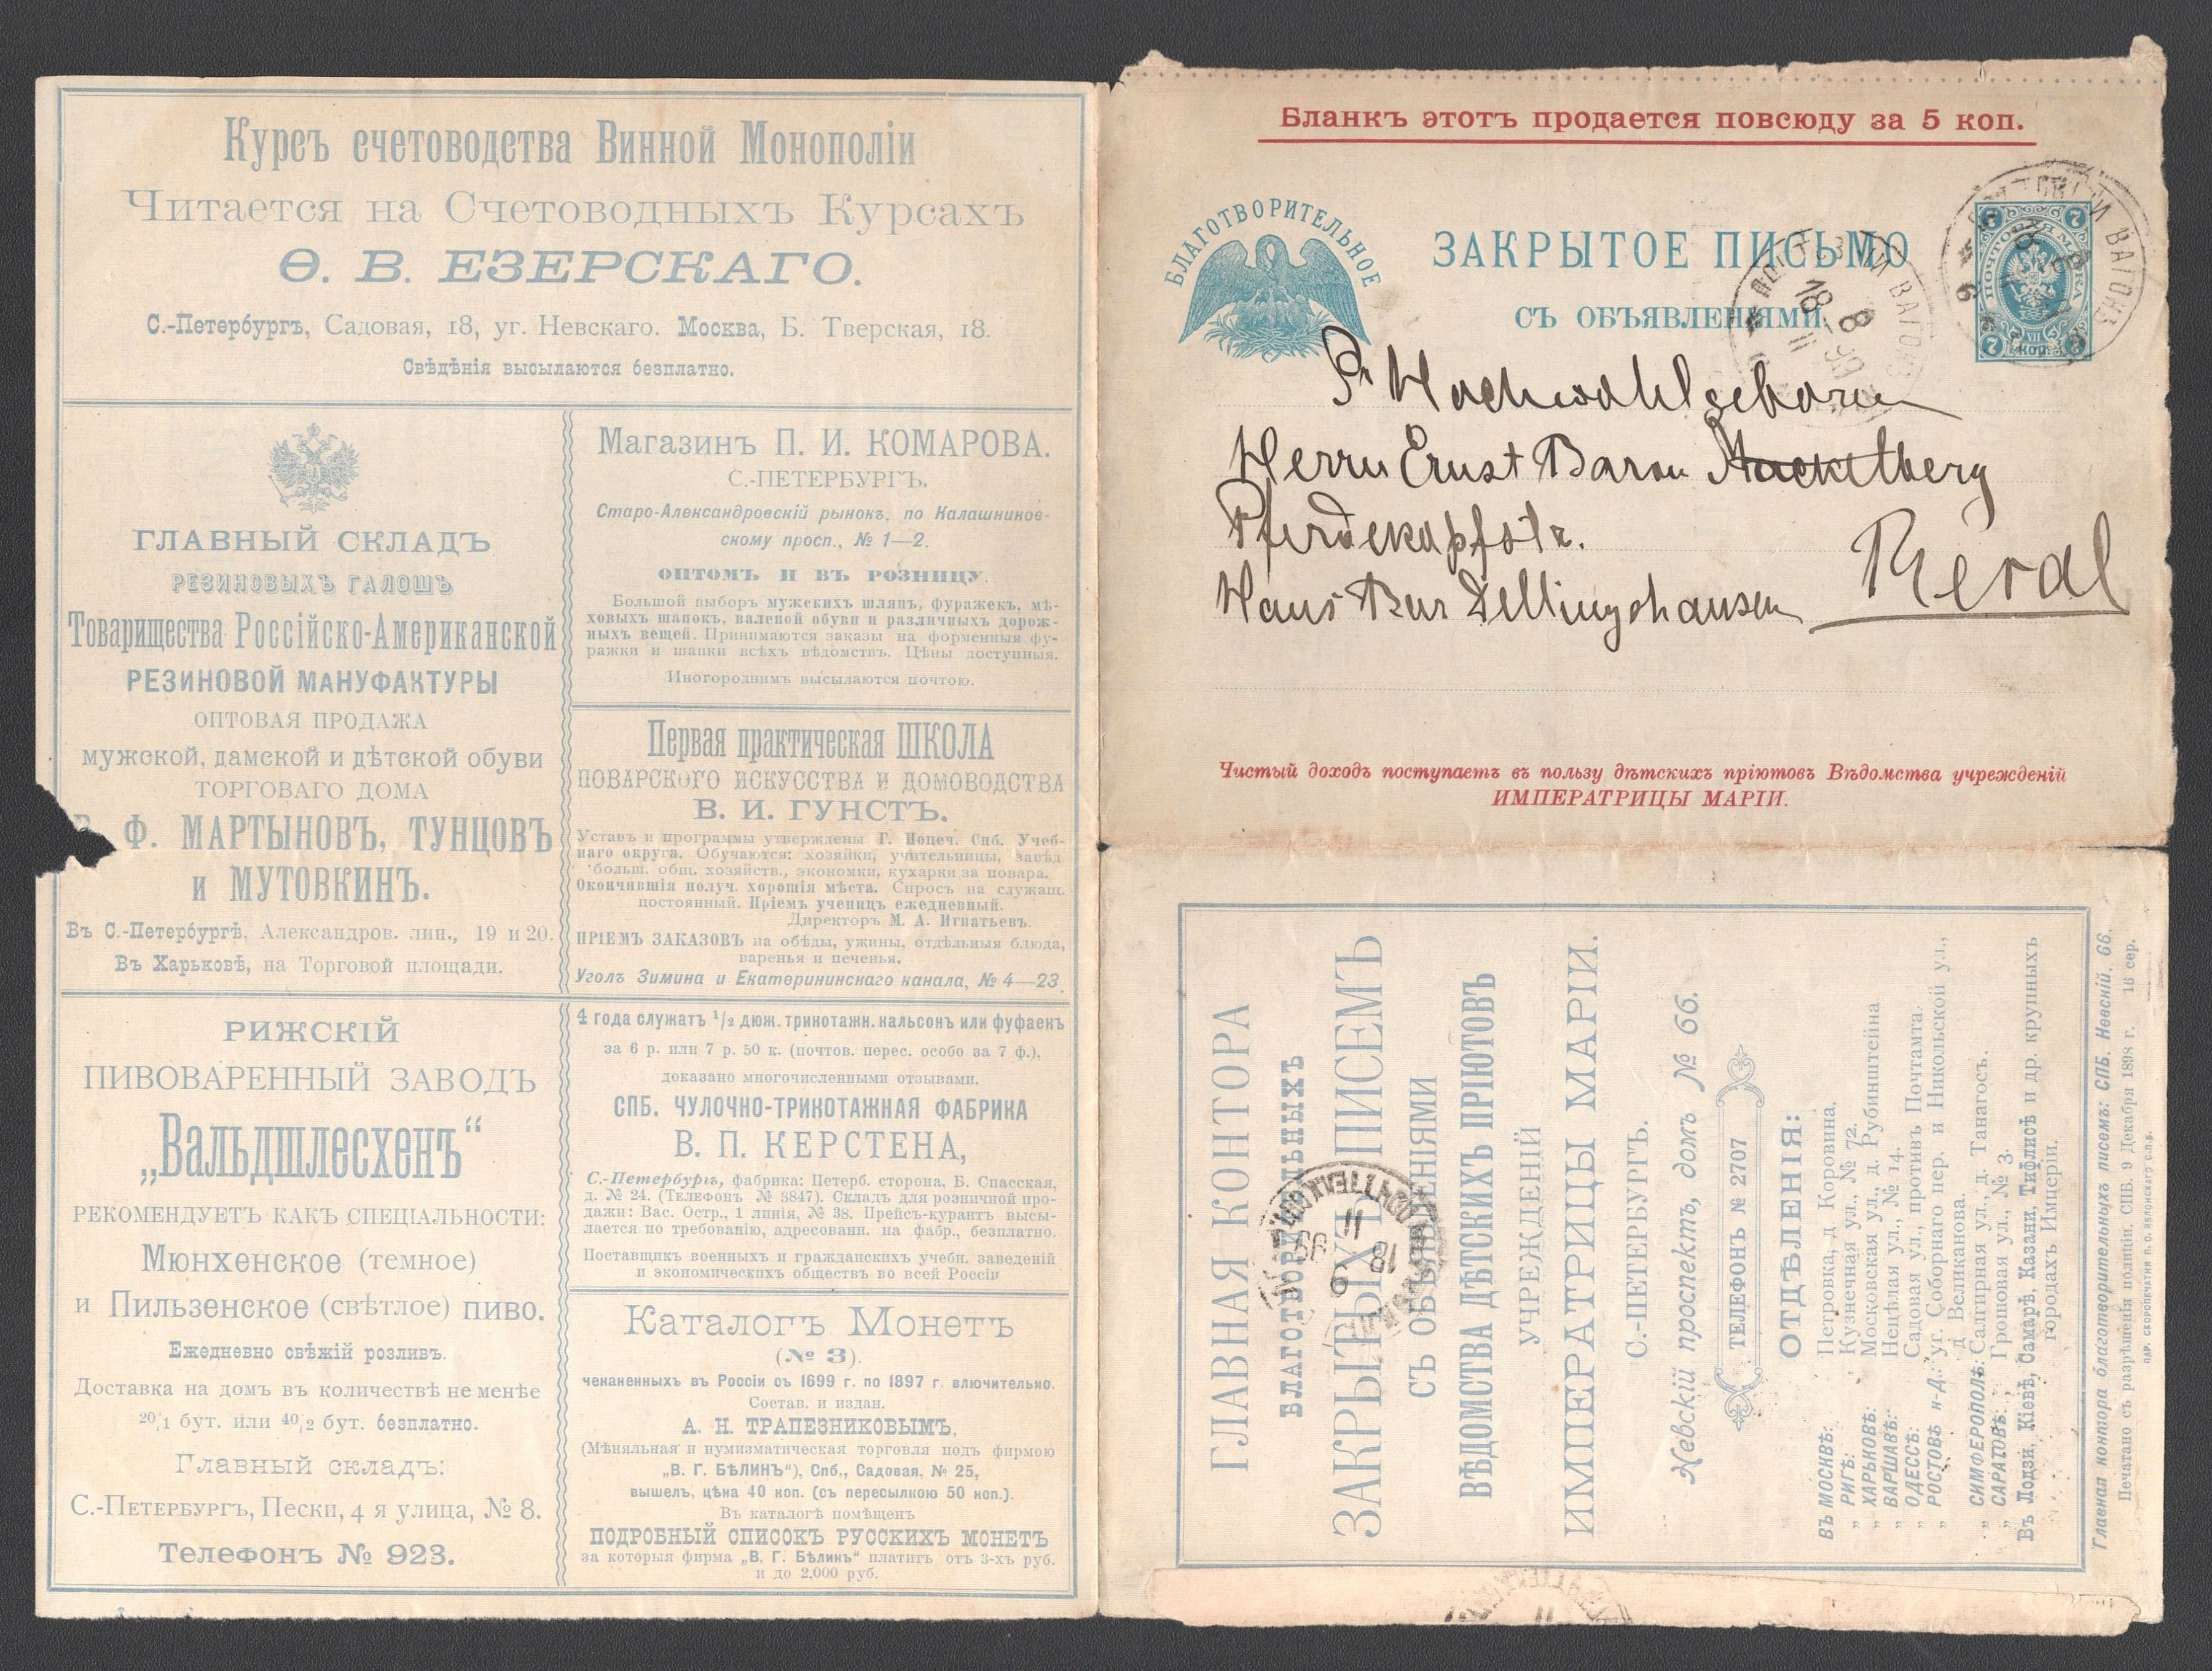 Курсъ счетоводства Винной Монополіи
Читается на Счетоводныхъ Курсахъ
Ѳ. В. ЕЗЕРСКАГО.
С.-Петербургъ, Садовая, 18, уг. Невскаго. Москва, Б. Тверская, 18.
Свѣдѣнія высылаются безплатно.
ГЛАВНЫЙ СКЛАДЪ
РЕЗИНОВЫХЪ ГАЛОШЪ
Товарищества Россійско-Американской
РЕЗИНОВОЙ МАНУФАКТУРЫ
ОПТОВАЯ ПРОДАЖА
мужской, дамской и дѣтской обуви
ТОРГОВАГО ДОМА
Ф. МАРТЫНОВЪ, ТУНЦОВЪ
и МУТОВКИНЪ.
Въ С.-Петербургѣ, Александров. лин., 19 и 20.
Въ Харьковѣ, на Торговой площади.
Магазинъ П. И. КОМАРОВА.
С.-ПЕТЕРБУРГЪ.
Старо-Александровскій рынокъ, по Калашников-
скому просп., № 1—2.
ОПТОМЪ И ВЪ РОЗНИЦУ.
Большой выборъ мужскихъ шляпъ, фуражекъ, мѣ-
ховыхъ шапокъ, валеной обуви и различныхъ дорож-
ныхъ вещей. Принимаются заказы на форменныя фу-
ражки и шапки всѣхъ вѣдомствъ. Цѣны доступныя.
Иногороднимъ высылаются почтою.
Первая практическая ШКОЛА
ПОВАРСКОГО ИСКУССТВА И ДОМОВОДСТВА
В. И. ГУНСТЪ.
Уставъ и программы утверждены Г. Попеч. Спб. Учеб-
наго округа. Обучаются: хозяйки, учительницы, завѣд.
больш. общ. хозяйств., экономки, кухарки за повара.
Окончившія получ. хорошія мѣста. Спросъ на служащ.
постоянный. Пріемъ ученицъ ежедневный.
Директоръ М. А. Игнатьевъ.
ПРІЕМЪ ЗАКАЗОВЪ на обѣды, ужины, отдѣльныя блюда,
варенья и печенья.
Уголъ Зимина и Екатерининскаго канала, № 4—23.
РИЖСКІЙ
ПИВОВАРЕННЫЙ ЗАВОДЪ
„Вальдшлесхенъ“
РЕКОМЕНДУЕТЪ КАКЪ СПЕЦІАЛЬНОСТИ:
Мюнхенское (темное)
и Пильзенское (свѣтлое) пиво.
Ежедневно свѣжій розливъ.
Доставка на домъ въ количествѣ не менѣе
20/1 бут. или 40/2 бут. безплатно.
Главный складъ:
С.-Петербургъ, Пески, 4 я улица, № 8.
Телефонъ № 923.
4 года служатъ 1/2 дюж. трикотажн. кальсонъ или фуфаекъ
за 6 р. или 7 р. 50 к. (почтов. перес. особо за 7 ф.),
доказано многочисленными отзывами.
СПБ. ЧУЛОЧНО-ТРИКОТАЖНАЯ ФАБРИКА
В. П. КЕРСТЕНА,
С.-Петербургъ, фабрика: Петерб. сторона, Б. Спасская,
д. № 24. (Телефонъ № 3847). Складъ для розничной про-
дажи: Вас. Остр., 1 линія, № 38. Прейсъ-курантъ высы-
лается по требованію, адресованн. на фабр., безплатно.
Поставщикъ военныхъ и гражданскихъ учебн. заведеній
и экономическихъ обществъ во всей Россіи
Каталогъ Монетъ
(№ 3).
чеканенныхъ въ Россіи съ 1699 г. по 1897 г. включительно.
Состав. и издан.
А. Н. ТРАПЕЗНИКОВЫМЪ,
(Мѣняльная и нумизматическая торговля подъ фирмою
„В. Г. БѢЛИНЪ“), Спб., Садовая, № 25,
вышелъ, цѣна 40 коп. (съ пересылкою 50 коп.).
Въ каталогѣ помѣщенъ
ПОДРОБНЫЙ СПИСОКЪ РУССКИХЪ МОНЕТЪ
за которыя фирма „В. Г. Бѣлинъ“ платитъ отъ 3-хъ руб.
и до 2,000 руб.
Бланкъ этотъ продается повсюду за 5 коп.
БЛАГОТВОРИТЕЛЬНОЕ
ЗАКРЫТОЕ ПИСЬМО
СЪ ОБЪЯВЛЕНІЯМИ.
ПОЧТОВАЯ МАРКА
7 7 7 7
ВАГОНЪ
18 8
Sr Hochwohlgeboren
Herrn Ernst Baron Stackelberg
Pferdekopfstr.
Haus Bar Dellingshausen
Reval
Чистый доходъ поступаетъ въ пользу дѣтскихъ пріютовъ Вѣдомства учрежденій
ИМПЕРАТРИЦЫ МАРІИ.
ГЛАВНАЯ КОНТОРА
БЛАГОТВОРИТЕЛЬНЫХЪ
ЗАКРЫТЫХЪ ПИСЕМЪ
СЪ ОБЪЯВЛЕНІЯМИ
ВѢДОМСТВА ДѢТСКИХЪ ПРІЮТОВЪ
УЧРЕЖДЕНІЙ
ИМПЕРАТРИЦЫ МАРІИ.
С.-ПЕТЕРБУРГЪ.
Невскій проспектъ, домъ № 66.
ТЕЛЕФОНЪ № 2707
ОТДѢЛЕНІЯ:
ВЪ МОСКВѢ: Петровка, д Коровина.
„ РИГѢ: Кузнечная ул., № 72.
„ ХАРЬКОВѢ: Московская ул., д. Рубинштейна
„ ВАРШАВѢ: Нецѣлая ул., № 14.
„ ОДЕССѢ: Садовая ул., противъ Почтамта.
„ РОСТОВѢ н-Д.: уг. Соборнаго пер. и Никольской ул.,
д Великанова.
„ СИМФЕРОПОЛѢ: Салгирная ул., д. Танагосъ.
„ САРАТОВѢ: Грошовая ул., № 3.
Въ Лодзи, Кіевѣ, Самарѣ, Казани, Тифлисѣ и др. крупныхъ
городахъ Имперіи.
Главная контора благотворительныхъ писемъ: СПБ. Невскій, 66.
Печатано съ разрѣшенія полиціи. СПБ. 9 Декабря 1898 г. 16 сер.
ПАР. СКОРОПЕЧАТНЯ П. О. ЯБЛОНСКАГО С.П.Б.
18 9
11 99